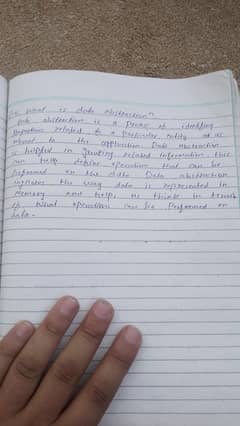 what is data abstraction
Data abstraction is a process of identifying
properties related to a particular entity as
to the application Data abstraction
helpful in related information. This
can help define operation that can be
performed on the data Data abstraction
the way data is represented in
memory and help us think in terms
of what operations can be performed on
data.